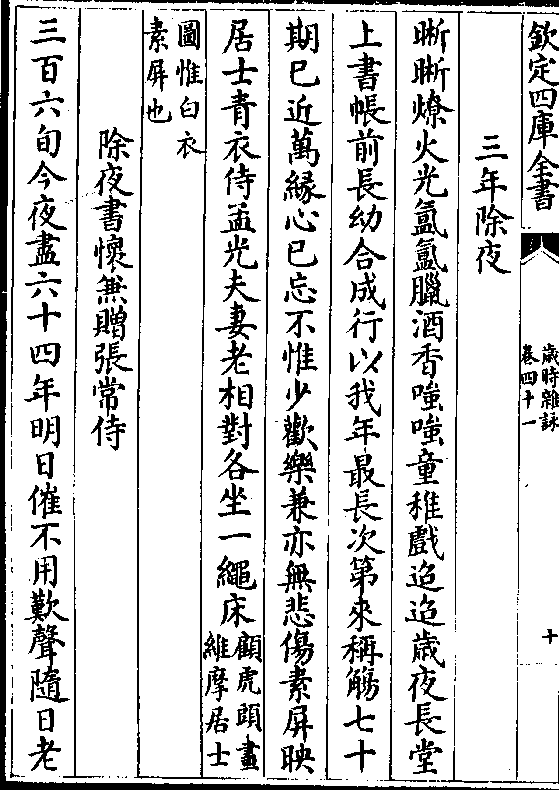 欽定四庫全書
歲時雜詠
卷四十一
十
三年除夜
晰晰燎火光氳氳臘酒香嗤嗤童稚戲迢迢歲夜長堂
上書帳前長幼合成行以我年最長次第來稱觴七十
期已近萬緣心已忘不惟少歡樂兼亦無悲傷素屏映
居士青衣侍孟光夫妻老相對各坐一繩床顧虎頭畫
維摩居士
圖惟白衣
素屏也
除夜書懷兼贈張常侍
三百六旬今夜盡六十四年明日催不用歎聲隨日老